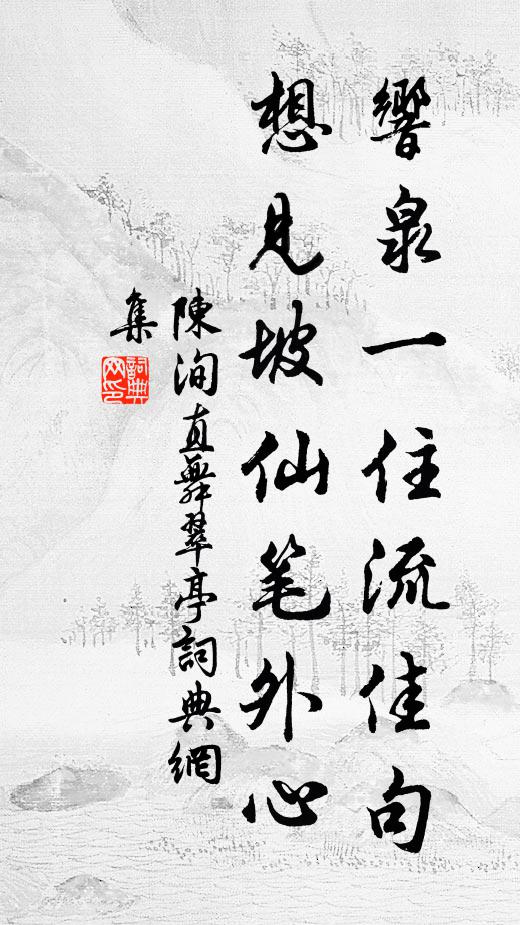 響泉一住流佳句
想見坡仙笔外心
陳洵直舞翠亭詞典網
集
詞典網印